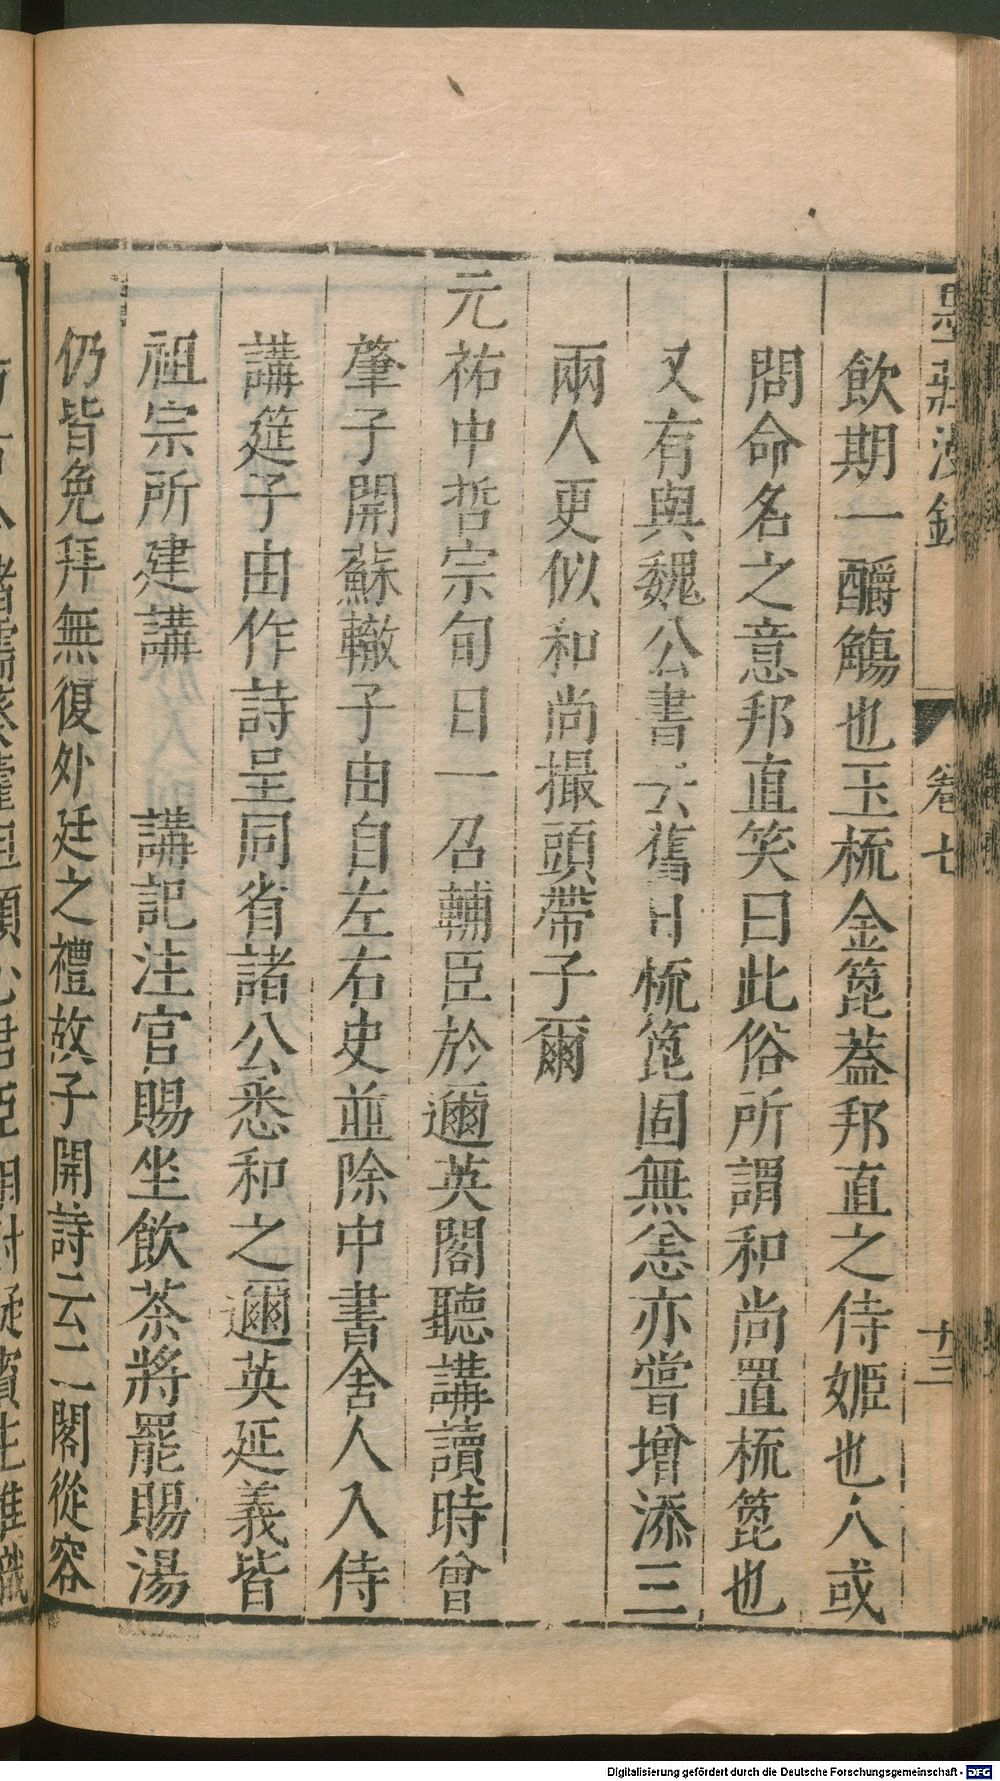 墨莊漫錄
卷七
十三
飲期一釂觴也玉梳金篦蓋邦直之侍姬也人或
問命名之意邦直笑曰此俗所謂和尚置梳篦也
又有與魏公書云舊日梳篦固無恙亦嘗增添三
兩人更似和尚撮頭帶子爾
元祐中哲宗旬日一召輔臣於邇英閣聽講讀時曾
肇子開蘇轍子由自左右史並除中書舍人入侍
講筵子由作詩呈同省諸公悉和之邇英延義皆
祖宗所建講 講記注官賜坐飲茶將罷賜湯
仍皆免拜無復外廷之禮故子開詩云二閣從容
Digitalisierung gefördert durch die Deutsche Forschungsgemeinschaft - DFG